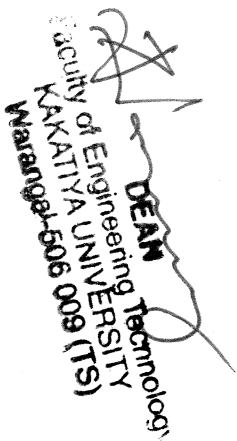 DEAN
Faculty of Engineering Technology
KAKATIYA UNIVERSITY
Warangal-506 009 (TS)